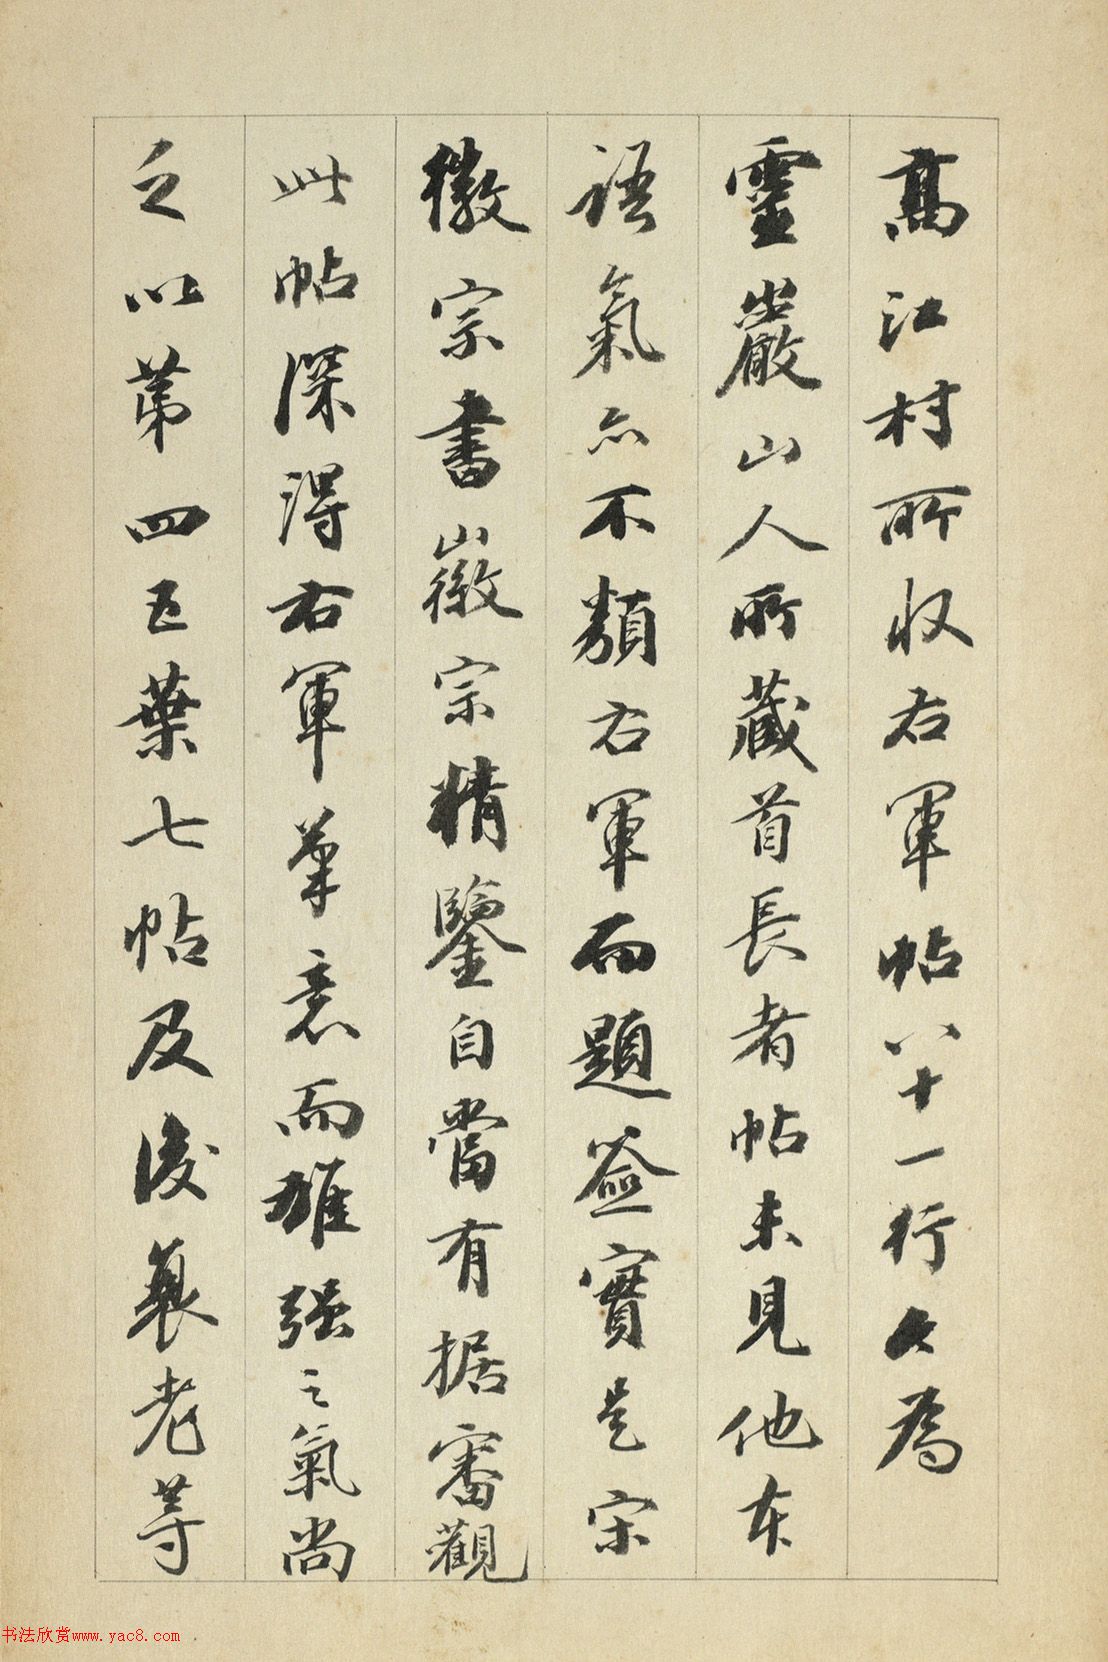 高江村所收右軍帖八十一行久為
靈巖山人所藏首長者帖未見他本
語氣亦不類右軍而題簽實是宋
徽宗書徽宗精鑒自當有据審觀
此帖深得右軍筆意而雄强之氣尚
之以第四五葉七帖及後襄老等
书法欣赏www.yac8.com